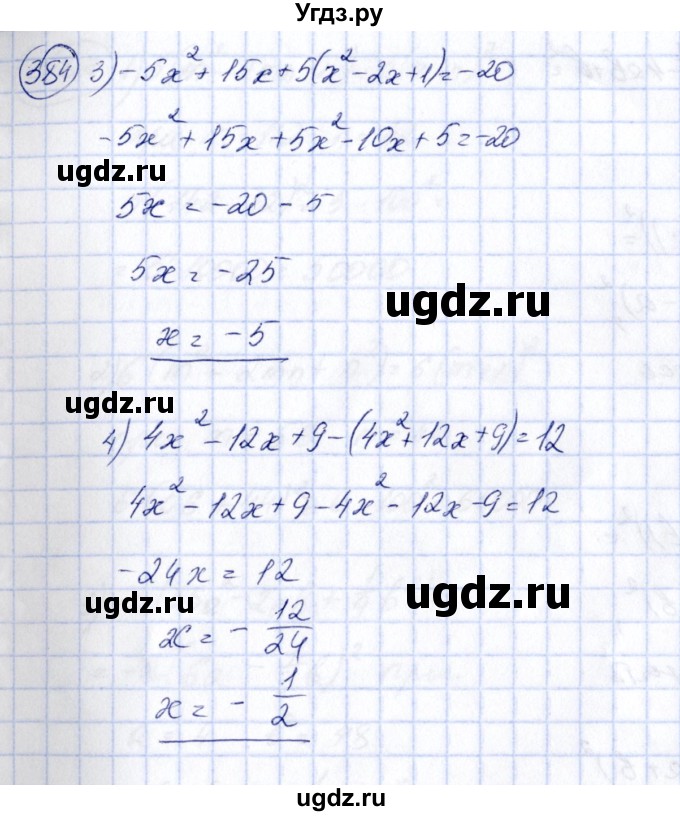 Угдз.ру
384 3) -5x² + 15x + 5(x² - 2x + 1) = -20
-5x² + 15x + 5x² - 10x + 5 = -20
ugdz.ru
5x = -20 - 5
5x = -25
ugdz.ru
x = -5
ugdz.ru
4) 4x² - 12x + 9 - (4x² + 12x + 9) = 12
4x² - 12x + 9 - 4x² - 12x - 9 = 12
-24x = 12
ugdz.ru
ugdz.ru
x = - 12/24
x = - 1/2
ugdz.ru